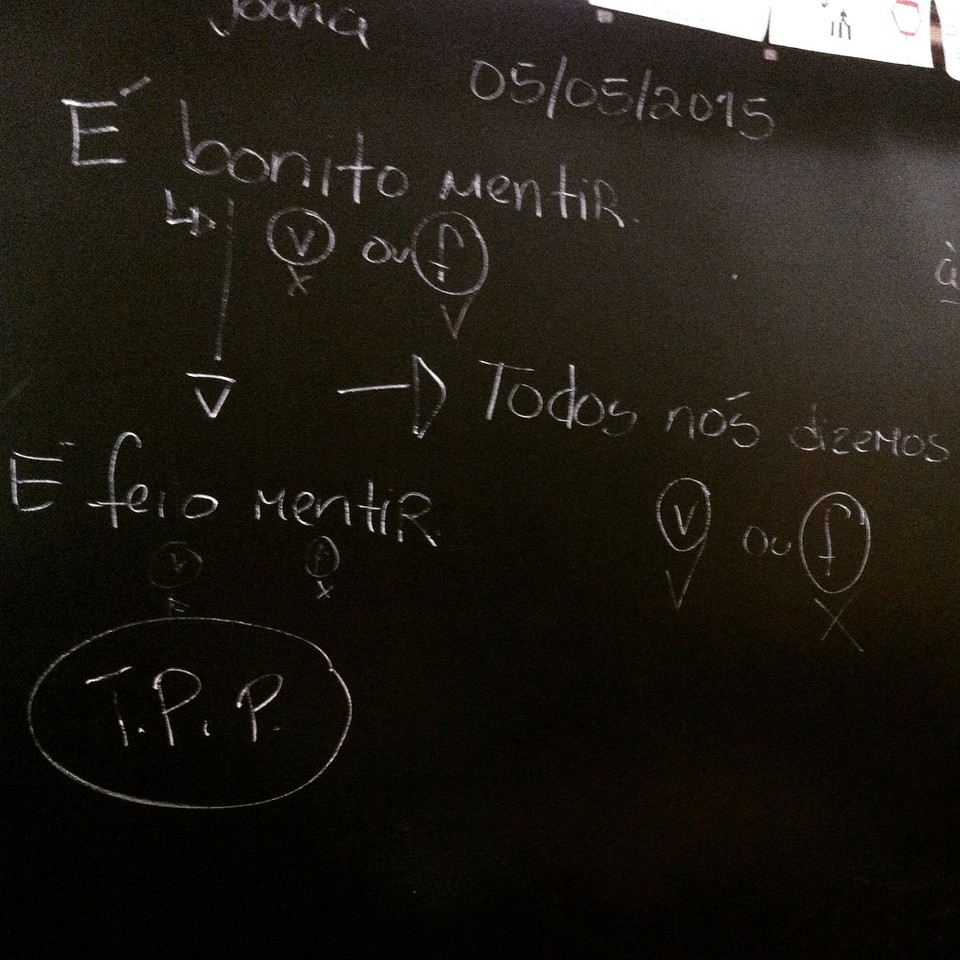 Joana
05/05/2015
É bonito mentir.
v ou f
x v
Todos nós dizemos
v ou f
v x
É feio mentir.
v f
x
T.P.P.
à